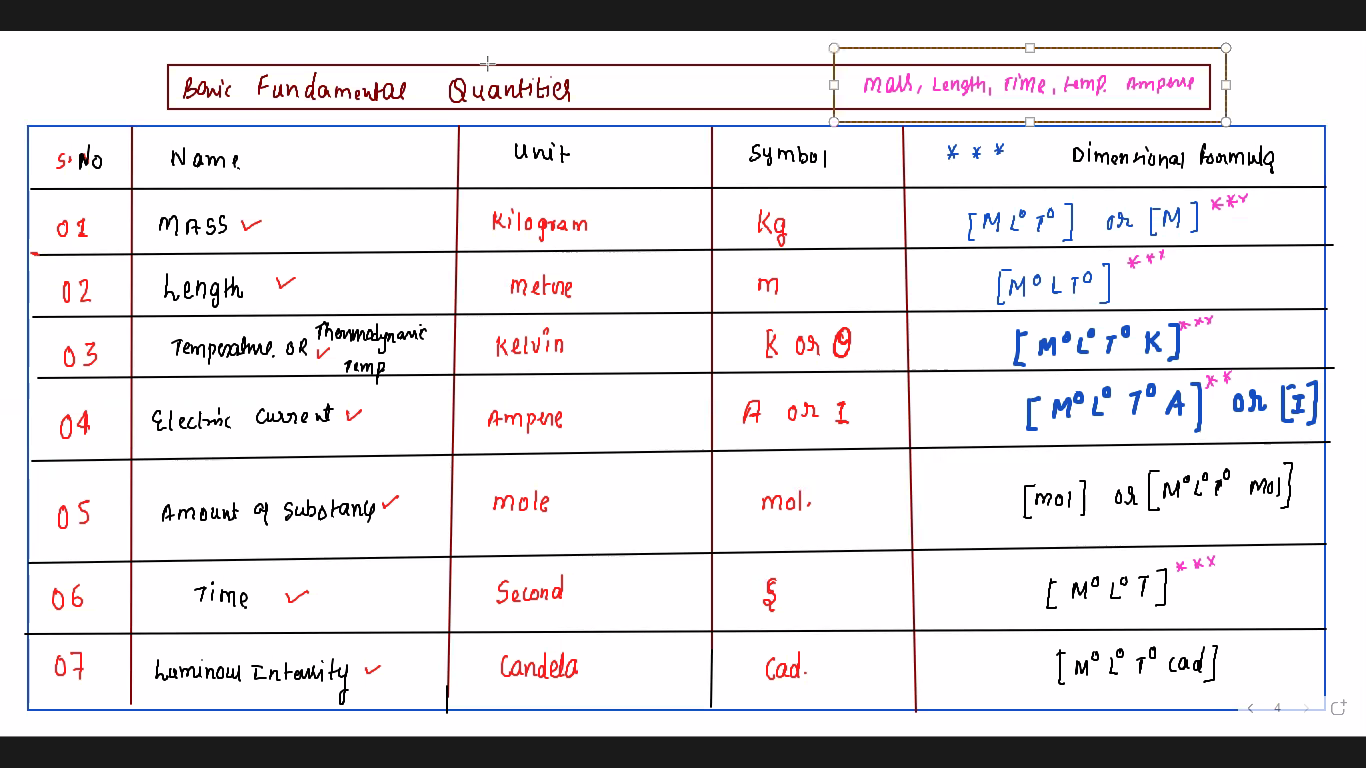 Basic Fundamental Quantities Mass, Length, Time, temp. Ampere
S.No Name Unit Symbol *** Dimensional formula
01 MASS ✓ Kilogram Kg [M L⁰ T⁰] or [M] ***
02 Length ✓ Metre m [M⁰ L T⁰] ***
03 Temperature. OR Thermodynamic Temp ✓ Kelvin K or θ [M⁰ L⁰ T⁰ K] ***
04 Electric Current ✓ Ampere A or I [M⁰ L⁰ T⁰ A] ** or [I]
05 Amount of Substance ✓ mole mol. [mol] or [M⁰ L⁰ T⁰ mol]
06 Time ✓ Second S [M⁰ L⁰ T] ***
07 Luminous Intensity ✓ Candela Cad. [M⁰ L⁰ T⁰ Cad]
4